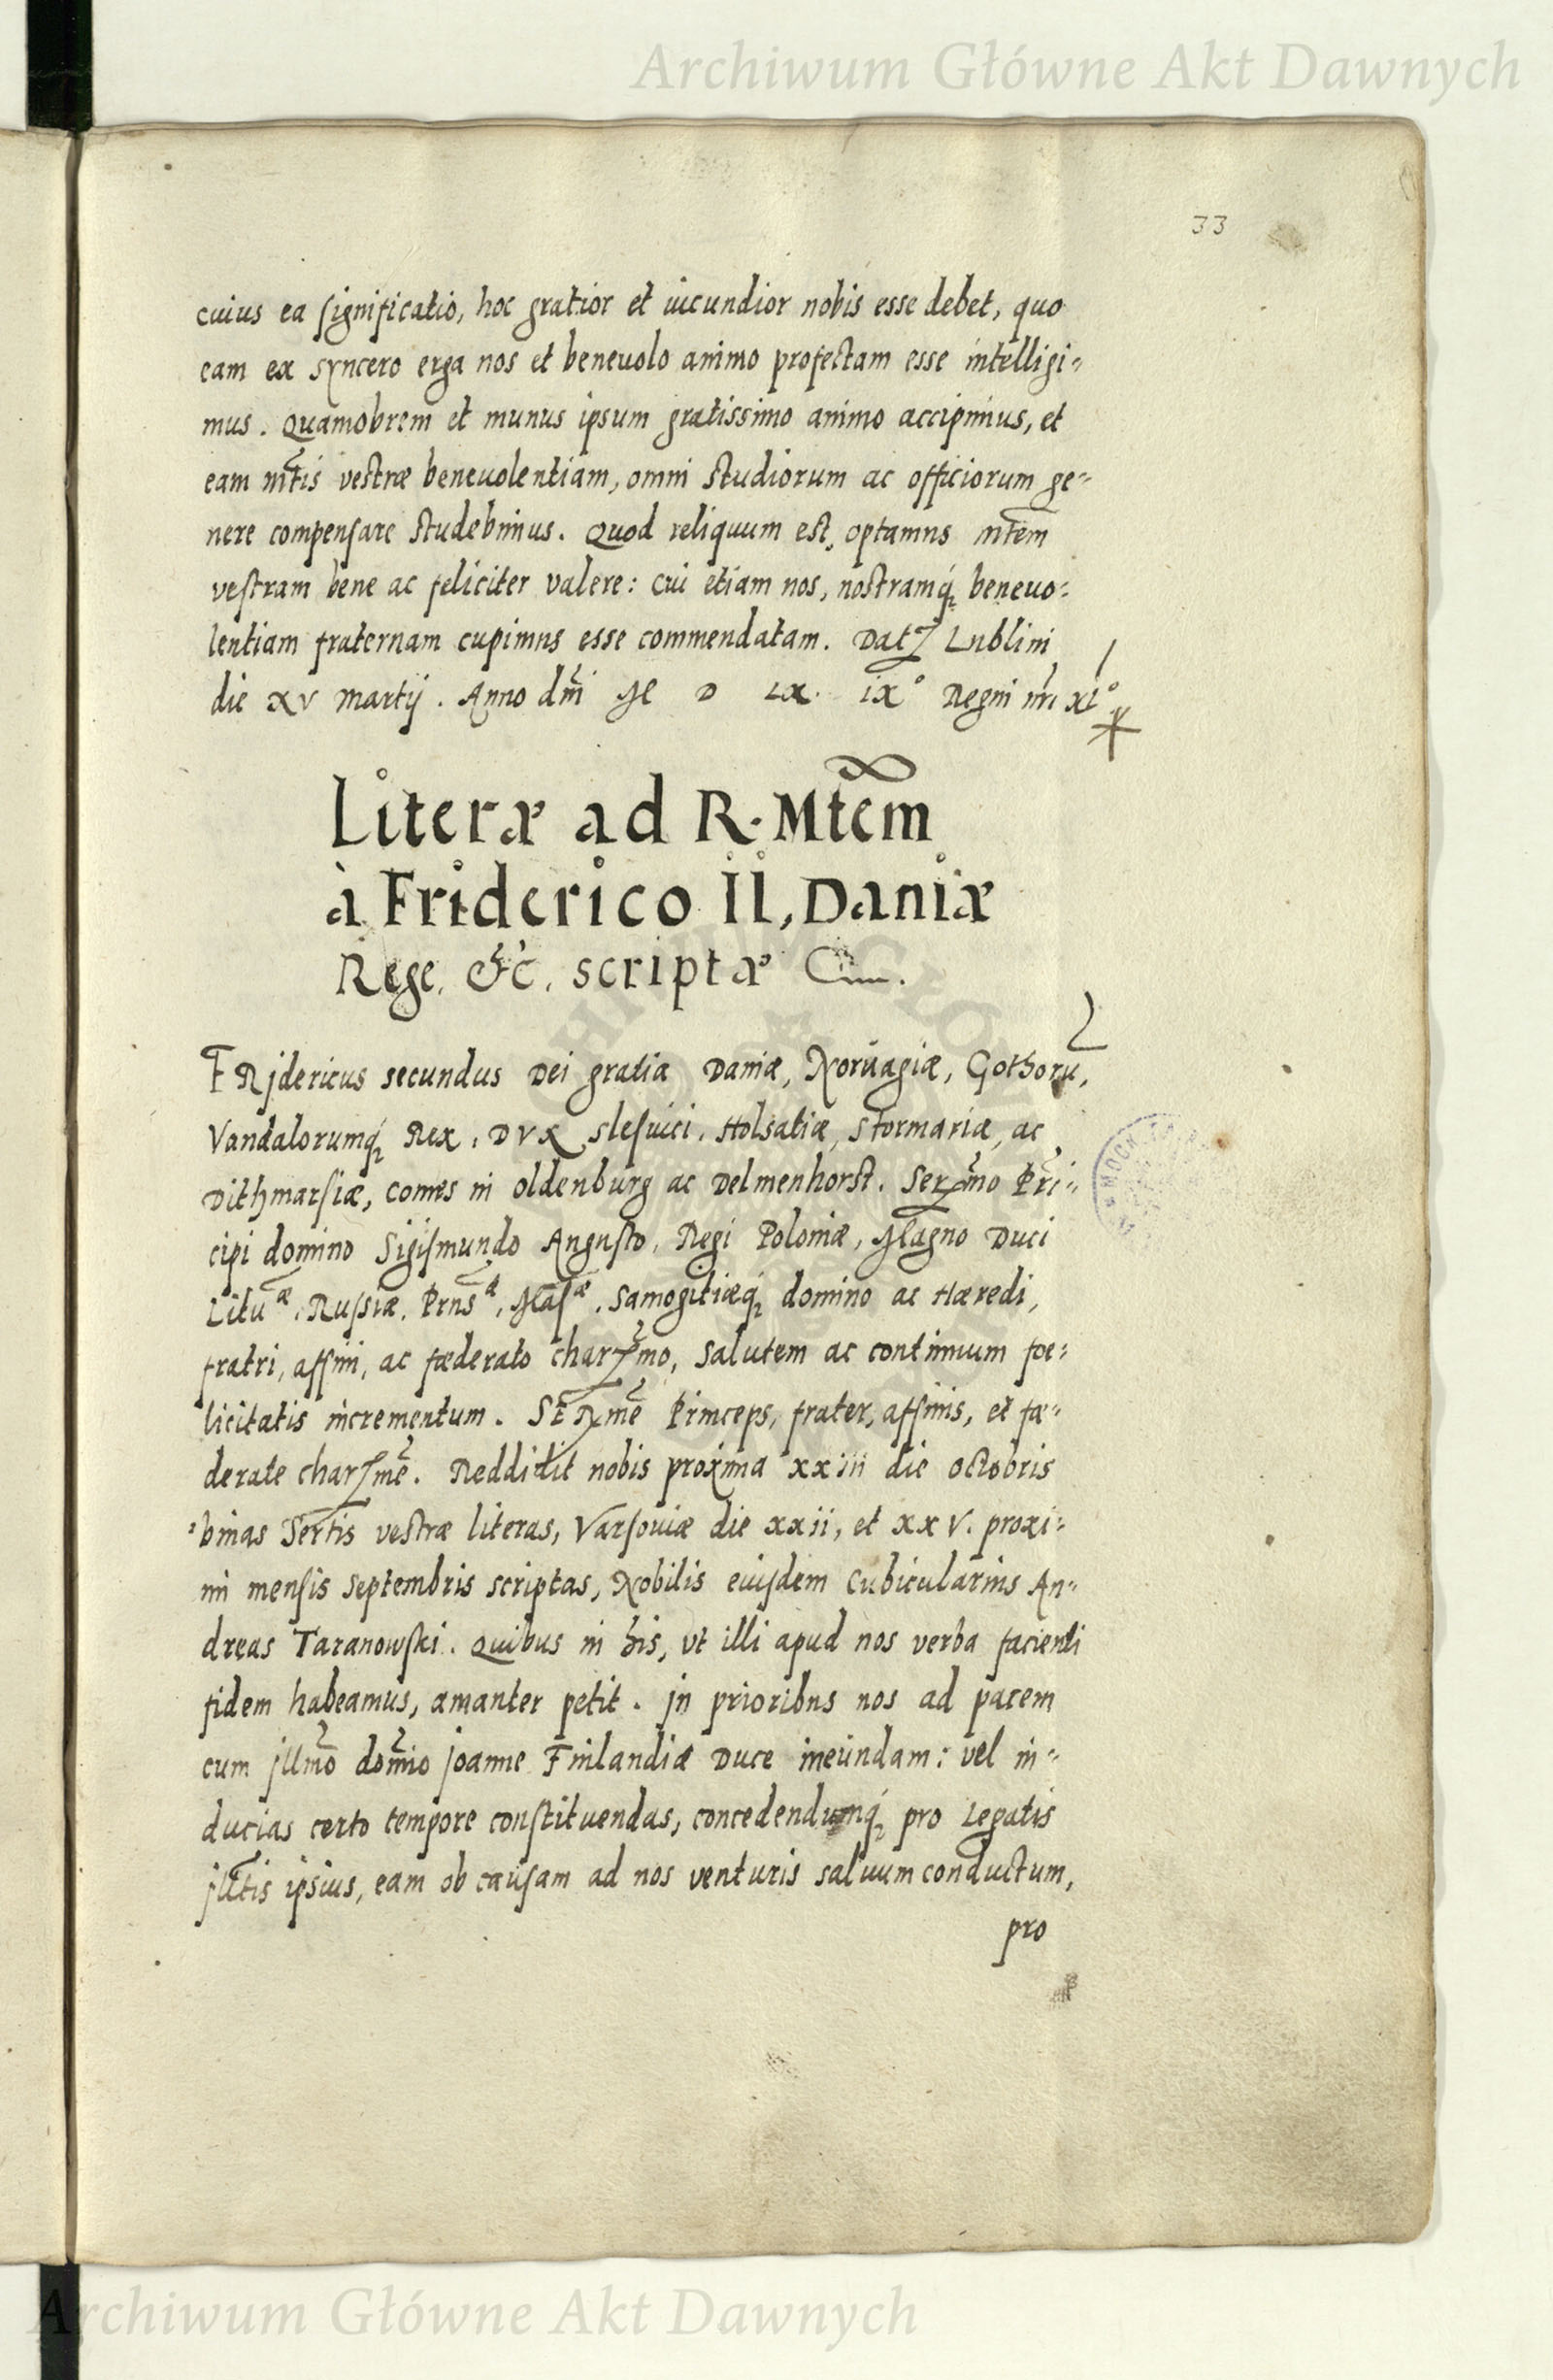 Archiwum Główne Akt Dawnych
33
cuius ea significatio, hoc gratior et iucundior nobis esse debet, quo
eam ex syncero erga nos et beneuolo animo profectam esse intelligi-
mus. Quamobrem et munus ipsum gratissimo animo accipimus, et
eam mtis vestræ beneuolentiam, omni studiorum ac officiorum ge-
nere compensare studebimus. Quod reliquum est, optamus mtem
vestram bene ac feliciter valere: cui etiam nos, nostramq; beneuo-
lentiam fraternam cupimus esse commendatam. Dat. Lublini
die xv martij. Anno dni M D LX. ix° Regni nri xl°
Literæ ad R. Mtem
à Friderico II, Daniæ
Rege. &c. scriptæ
FRidericus secundus Dei gratia Daniæ, Noruagiæ, Gothorū,
Vandalorumq; Rex, DVX Slesuici, Holsatiæ, Stormariæ, ac
Dithmarsiæ, comes in oldenburg ac Delmenhorst. Serzmo Pri-
cipi domino Sigismundo Augusto, Regi Poloniæ, Magno Duci
Lituæ, Russiæ, Prusæ, Masæ, Samogitiæq; domino ac Hæredi,
fratri, affini, ac fæderato charzmo, salutem ac continuum foe-
licitatis incrementum. SERzme Princeps, frater, affinis, et fæ-
derate charzme. Reddidit nobis proxima xxiii die octobris
binas Sertis vestræ literas, Varsouiæ die xxii, et xxv. proxi-
mi mensis Septembris scriptas, Nobilis eiusdem Cubicularius An-
dreas Taranowski. Quibus in his, vt illi apud nos verba facienti
fidem habeamus, amanter petit. in prioribus nos ad pacem
cum jllmo domio joanne Finlandiæ Duce ineundam: vel in-
ducias certo tempore constituendas, concedendumq; pro Legatis
jlltis ipsius, eam ob causam ad nos venturis saluum conductum,
pro
Archiwum Główne Akt Dawnych